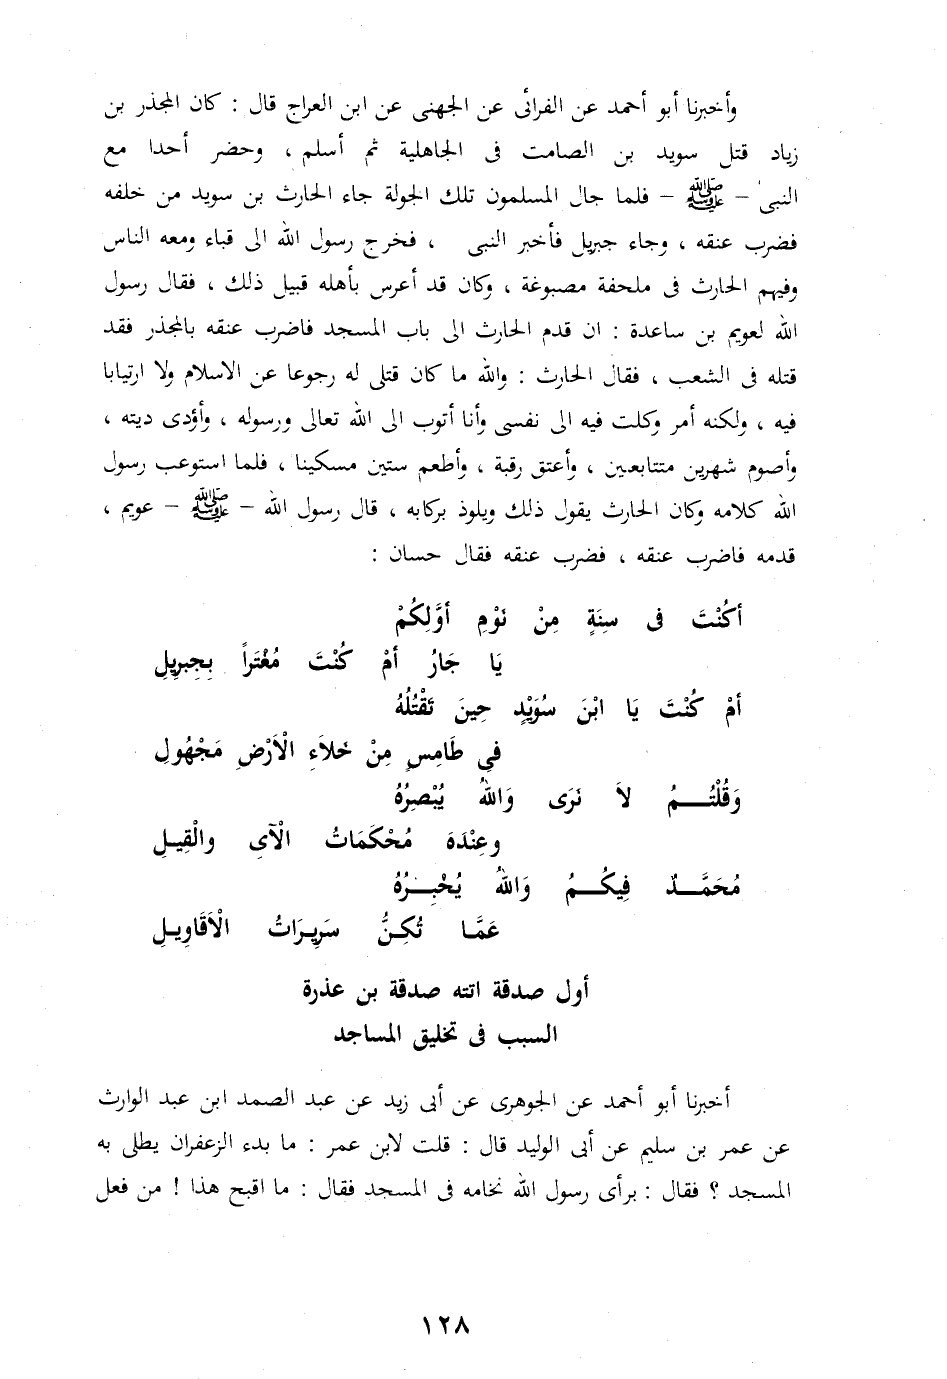 وأخبرنا أبو أحمد عن الفرائى عن الجهنى عن ابن العراج قال : كان المجذر بن
زياد قتل سويد بن الصامت فى الجاهلية ثم أسلم ، وحضر أحدا مع
النبى - ﷺ - فلما جال المسلمون تلك الجولة جاء الحارث بن سويد من خلفه
فضرب عنقه ، وجاء جبريل فأخبر النبى ، فخرج رسول الله الى قباء ومعه الناس
وفيهم الحارث فى ملحفة مصبوغة ، وكان قد أعرس بأهله قبيل ذلك ، فقال رسول
الله لعويم بن ساعدة : ان قدم الحارث الى باب المسجد فاضرب عنقه بالمجذر فقد
قتله فى الشعب ، فقال الحارث : والله ما كان قتلى له رجوعا عن الاسلام ولا ارتيابا
فيه ، ولكنه أمر وكلت فيه الى نفسى وأنا أتوب الى الله تعالى ورسوله ، وأؤدى ديته ،
وأصوم شهرين متتابعين ، وأعتق رقبة ، وأطعم ستين مسكينا ، فلما استوعب رسول
الله كلامه وكان الحارث يقول ذلك ويلوذ بركابه ، قال رسول الله - ﷺ - عويم ،
قدمه فاضرب عنقه ، فضرب عنقه فقال حسان :
أكُنْتَ فى سِنَةٍ مِنْ نَوْمِ أوَّلِكُمْ
يَا جَارُ أمْ كُنْتَ مُغْتَراً بِجِبرِيلِ
أمْ كُنْتَ يَا ابْنَ سُوَيْدٍ حِينَ تَقْتُلُهُ
فِي طَامِسٍ مِنْ خَلاَءِ الْأَرْضِ مَجْهُولِ
وَقُلْتُـــمُ لاَ نَرَى وَاللهُ يُبْصِرُهُ
وعِنْدَهَ مُحْكَمَاتُ الْآىِ والْقِيـلِ
مُحَمَّـــدٌ فِيكُـــمُ وَاللهُ يُخْبِـرُهُ
عَمَّـا تُكِـنُّ سَرِيـرَاتُ الْأَقَاوِيـلِ
أول صدقة اتته صدقة بن عذرة
السبب فى تخليق المساجد
أخبرنا أبو أحمد عن الجوهرى عن أبى زيد عن عبد الصمد ابن عبد الوارث
عن عمر بن سليم عن أبى الوليد قال : قلت لابن عمر : ما بدء الزعفران يطلى به
المسجد ؟ فقال : برأى رسول الله نخامه فى المسجد فقال : ما اقبح هذا ! من فعل
١٢٨